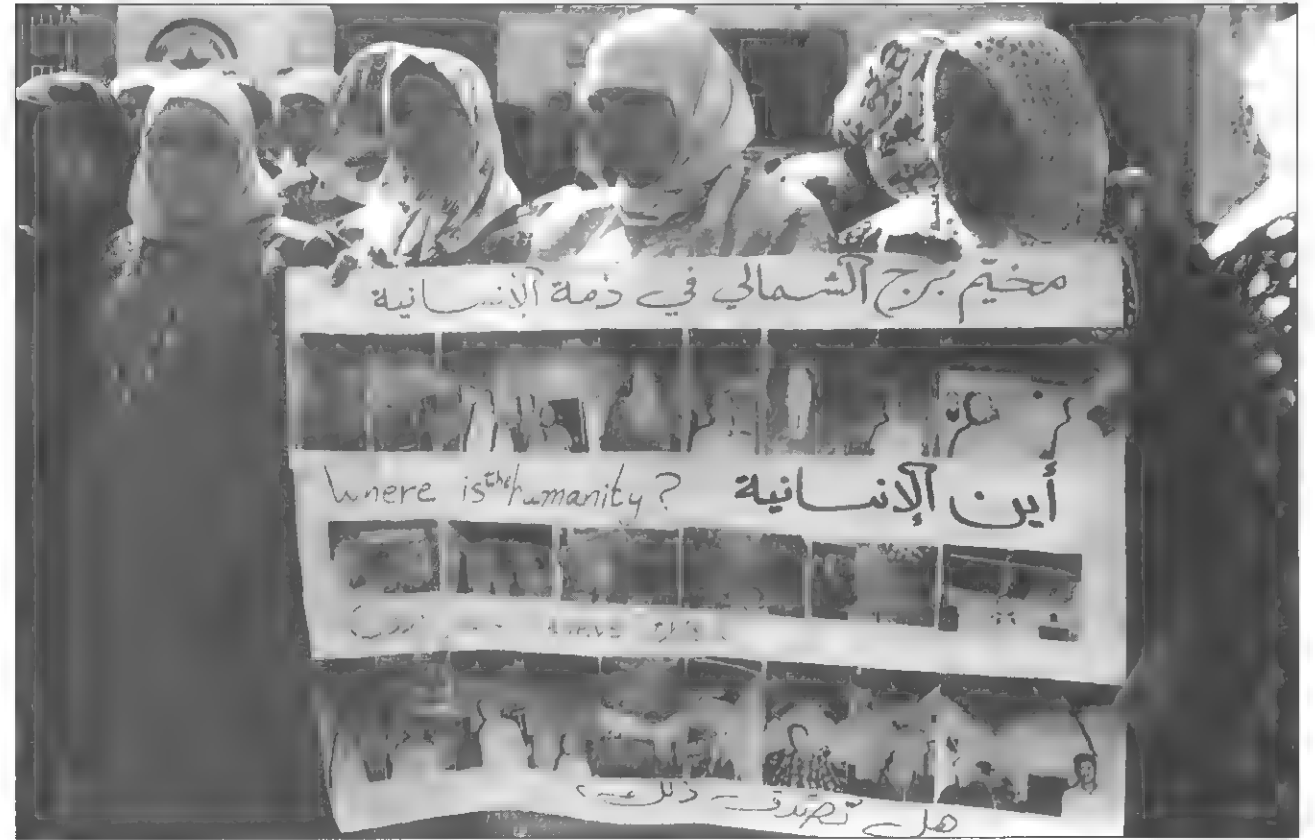 مخيّم برج الشمالي في ذمة الإنسانية
Where is the humanity? أين الإنسانية
هل تصدق ذلك